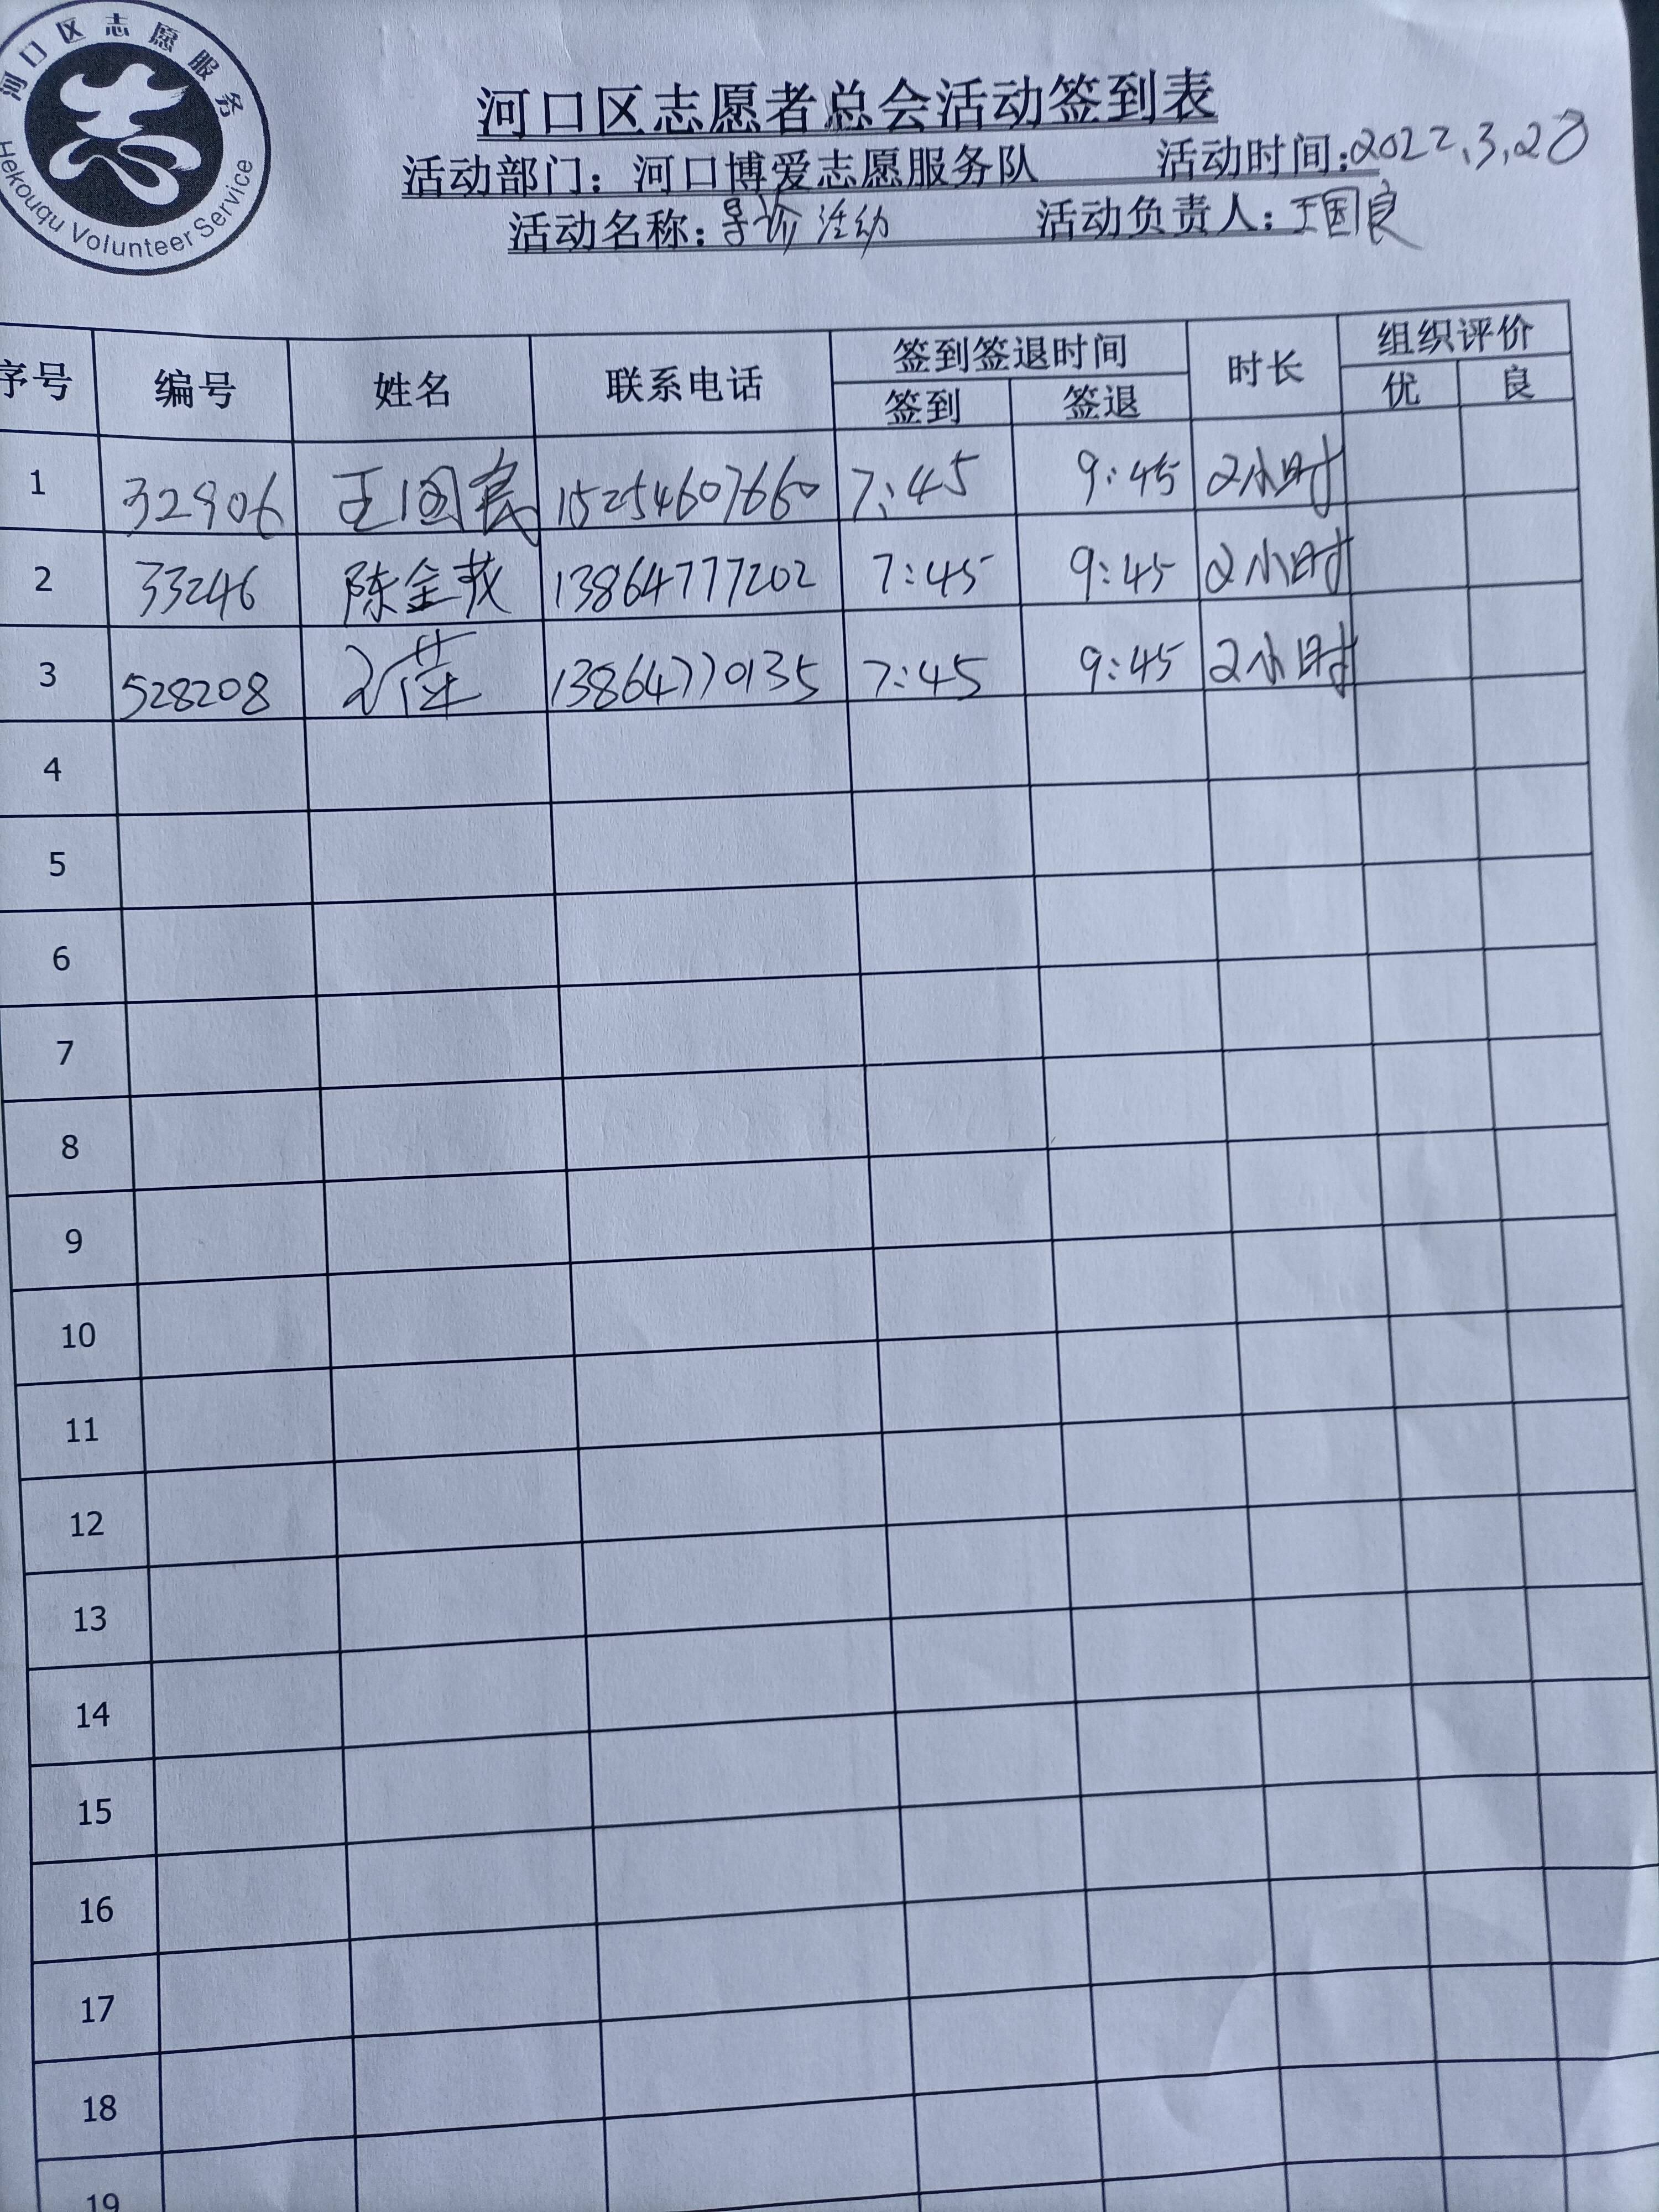 河口区志愿服务
Hekouqu Volunteer Service
河口区志愿者总会活动签到表
活动部门：河口博爱志愿服务队 活动时间：2022.3.20
活动名称：导诊活动 活动负责人：王国良
序号 编号 姓名 联系电话 签到签退时间 时长 组织评价
签到 签退 优 良
1 32906 王国良 15254607660 7:45 9:45 2小时
2 33246 陈金茂 13864777202 7:45 9:45 2小时
3 528208 13864770135 7:45 9:45 2小时
4
5
6
7
8
9
10
11
12
13
14
15
16
17
18
19